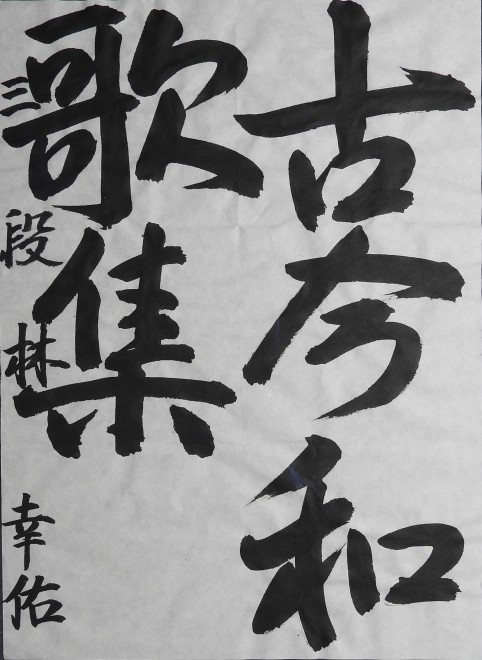 古今和
歌集
三段 林 幸佑